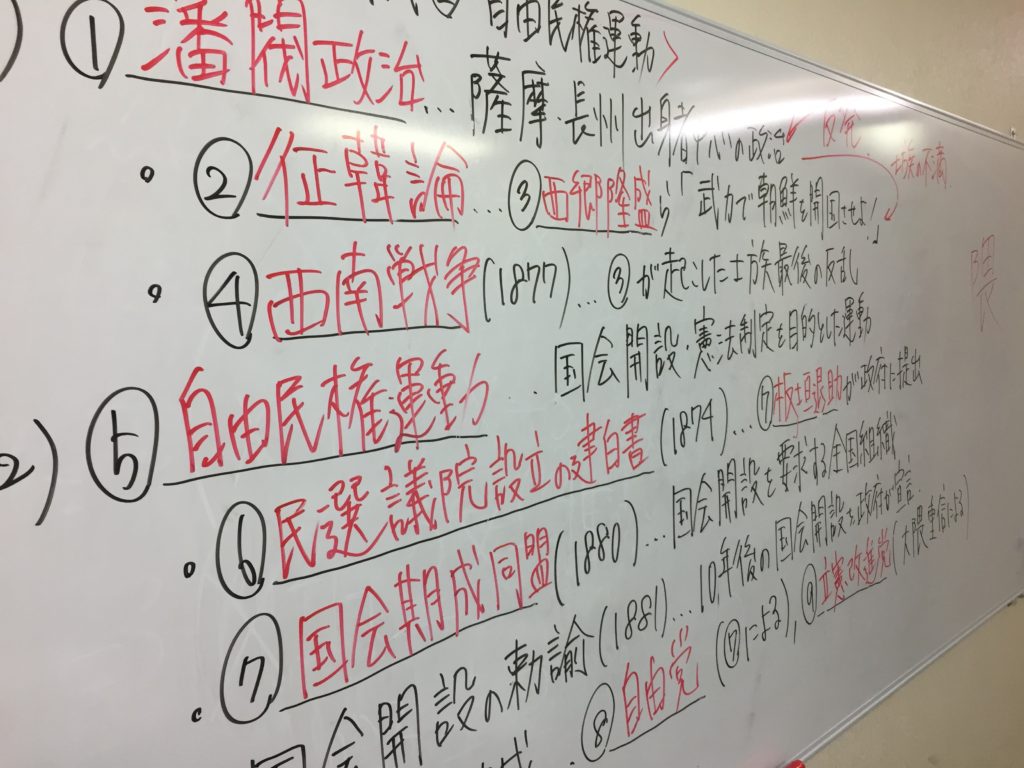 自由民権運動>
① 潘閥政治…薩摩・長州出身者中心の政治
反発
士族の不満
・② 征韓論…③西郷隆盛ら「武力で朝鮮を開国させよ!」
隈
・④ 西南戦争(1877)…③が起こした士族最後の反乱
2) ⑤ 自由民権運動…国会開設・憲法制定を目的とした運動
・⑥ 民選議院設立の建白書(1874)…⑦板垣退助が政府に提出
・⑦ 国会期成同盟(1880)…国会開設を要求する全国組織
国会開設の勅諭(1881)…10年後の国会開設を政府が宣言
⑧自由党(⑦による),⑨立憲改進党(大隈重信による)